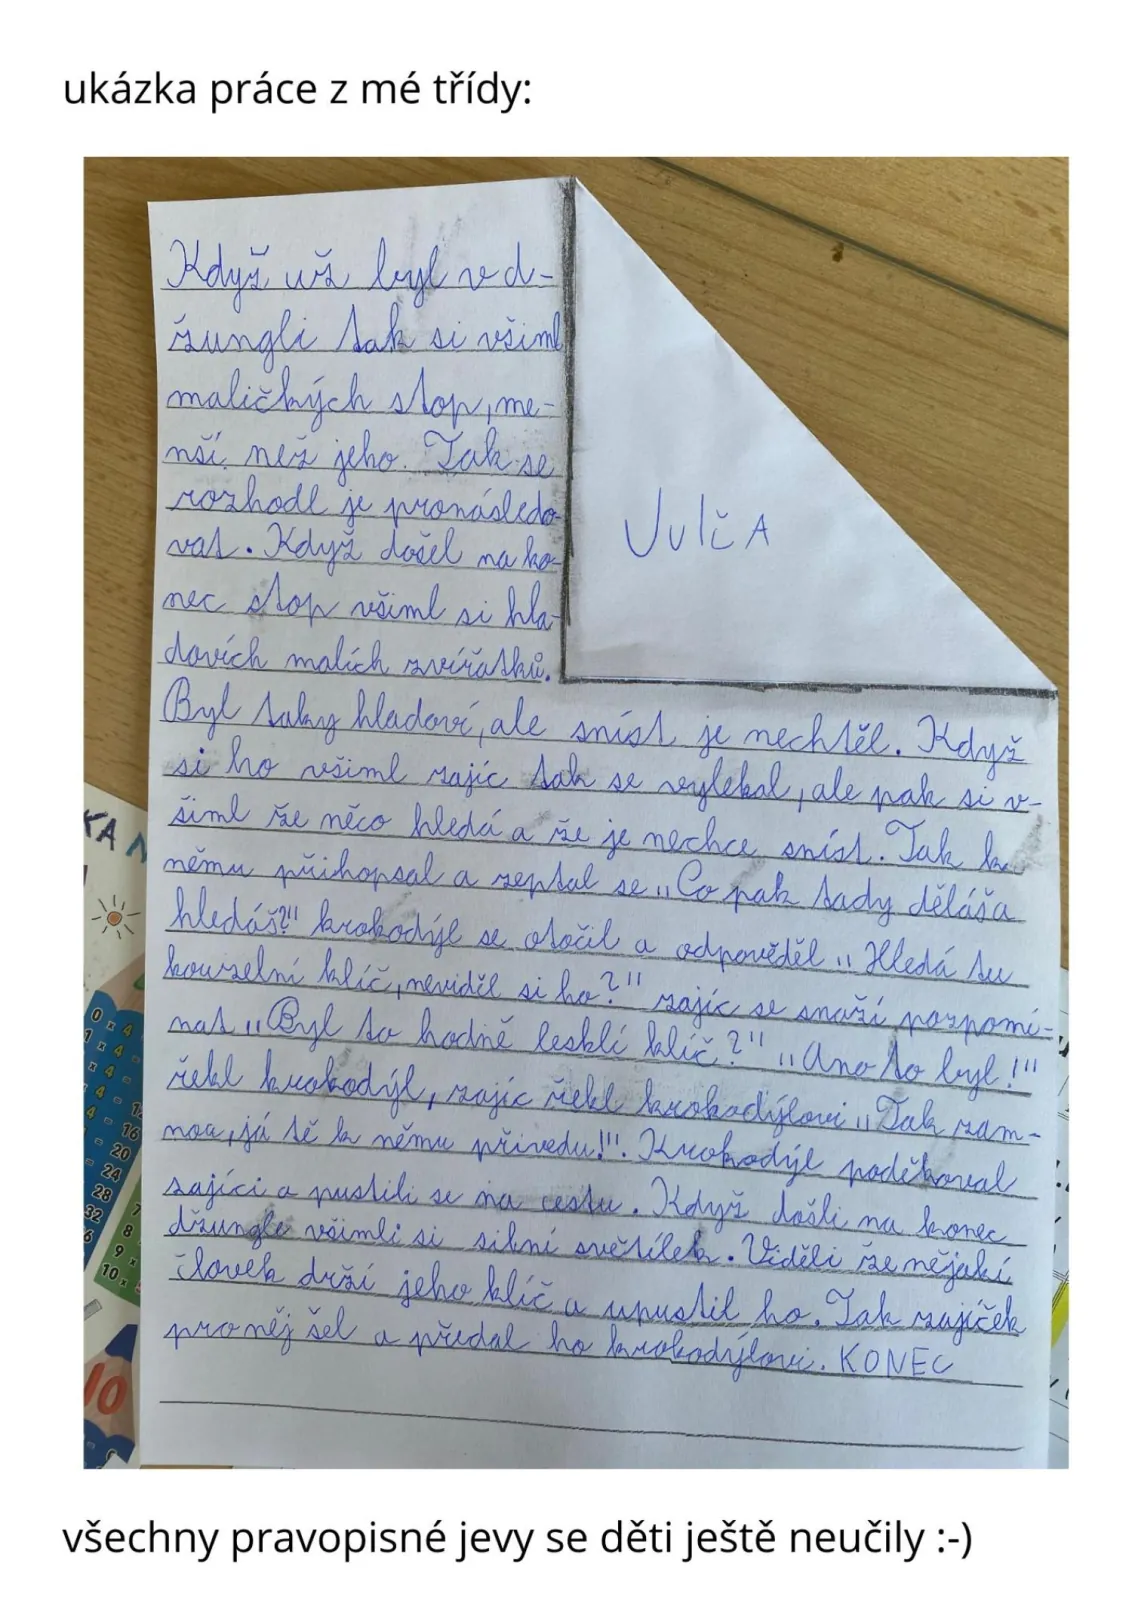 ukázka práce z mé třídy:
Když už byl v d-
žungli tak si všiml
maličkých stop, me-
nší než jeho. Tak se
rozhodl je pronásledo-
vat. Když došel na ko-
nec stop všiml si hla-
dovích malích zvířatků.
JulčA
Byl taky hladoví, ale sníst je nechtěl. Když
si ho všiml zajíc tak se vylekal, ale pak si v-
šiml že něco hledá a že je nechce sníst. Tak k
němu přihopsal a zeptal se „Co pak tady děláša
hledáš?!" krokodýl se otočil a odpověděl „Hledá tu
kouzelní klíč, neviděl si ho?" zajíc se snaží rozpomí-
nat „Byl to hodně lesklí klíč?" „Ano to byl!"
řekl krokodýl, zajíc řekl krokodýlovi „Tak zam-
nou, já tě k němu přivedu!!". Krokodýl poděkoval
zajíci a pustili se na cestu. Když došli na konec
džungle všimli si silní světílek. Viděli že nějakí
človek drží jeho klíč a upustil ho. Tak zajíček
pro něj šel a předal ho krokodýlovi. KONEC
KA
0 x 4
1 x 4 =
x 4 =
4 =
4 = 12
= 16
= 20
24
28
32
6
7
8
9 x
10 x
10
všechny pravopisné jevy se děti ještě neučily :-)